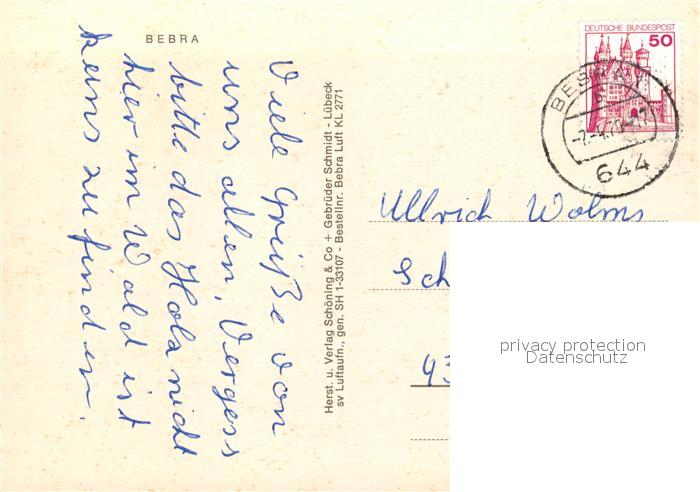 BEBRA
Viele Grüße von
uns allen. Vergess
bitte das Holz nicht
hier im Wald ist
keins zu finden.
Herst. u. Verlag Schöning & Co + Gebrüder Schmidt - Lübeck
sv Luftaufn., gen. SH 1-33107 - Bestellnr. Bebra Luft KL 2771
DEUTSCHE BUNDESPOST
50
BEBRA 1
644
Ullrich Wolms
Sch
43
privacy protection
Datenschutz